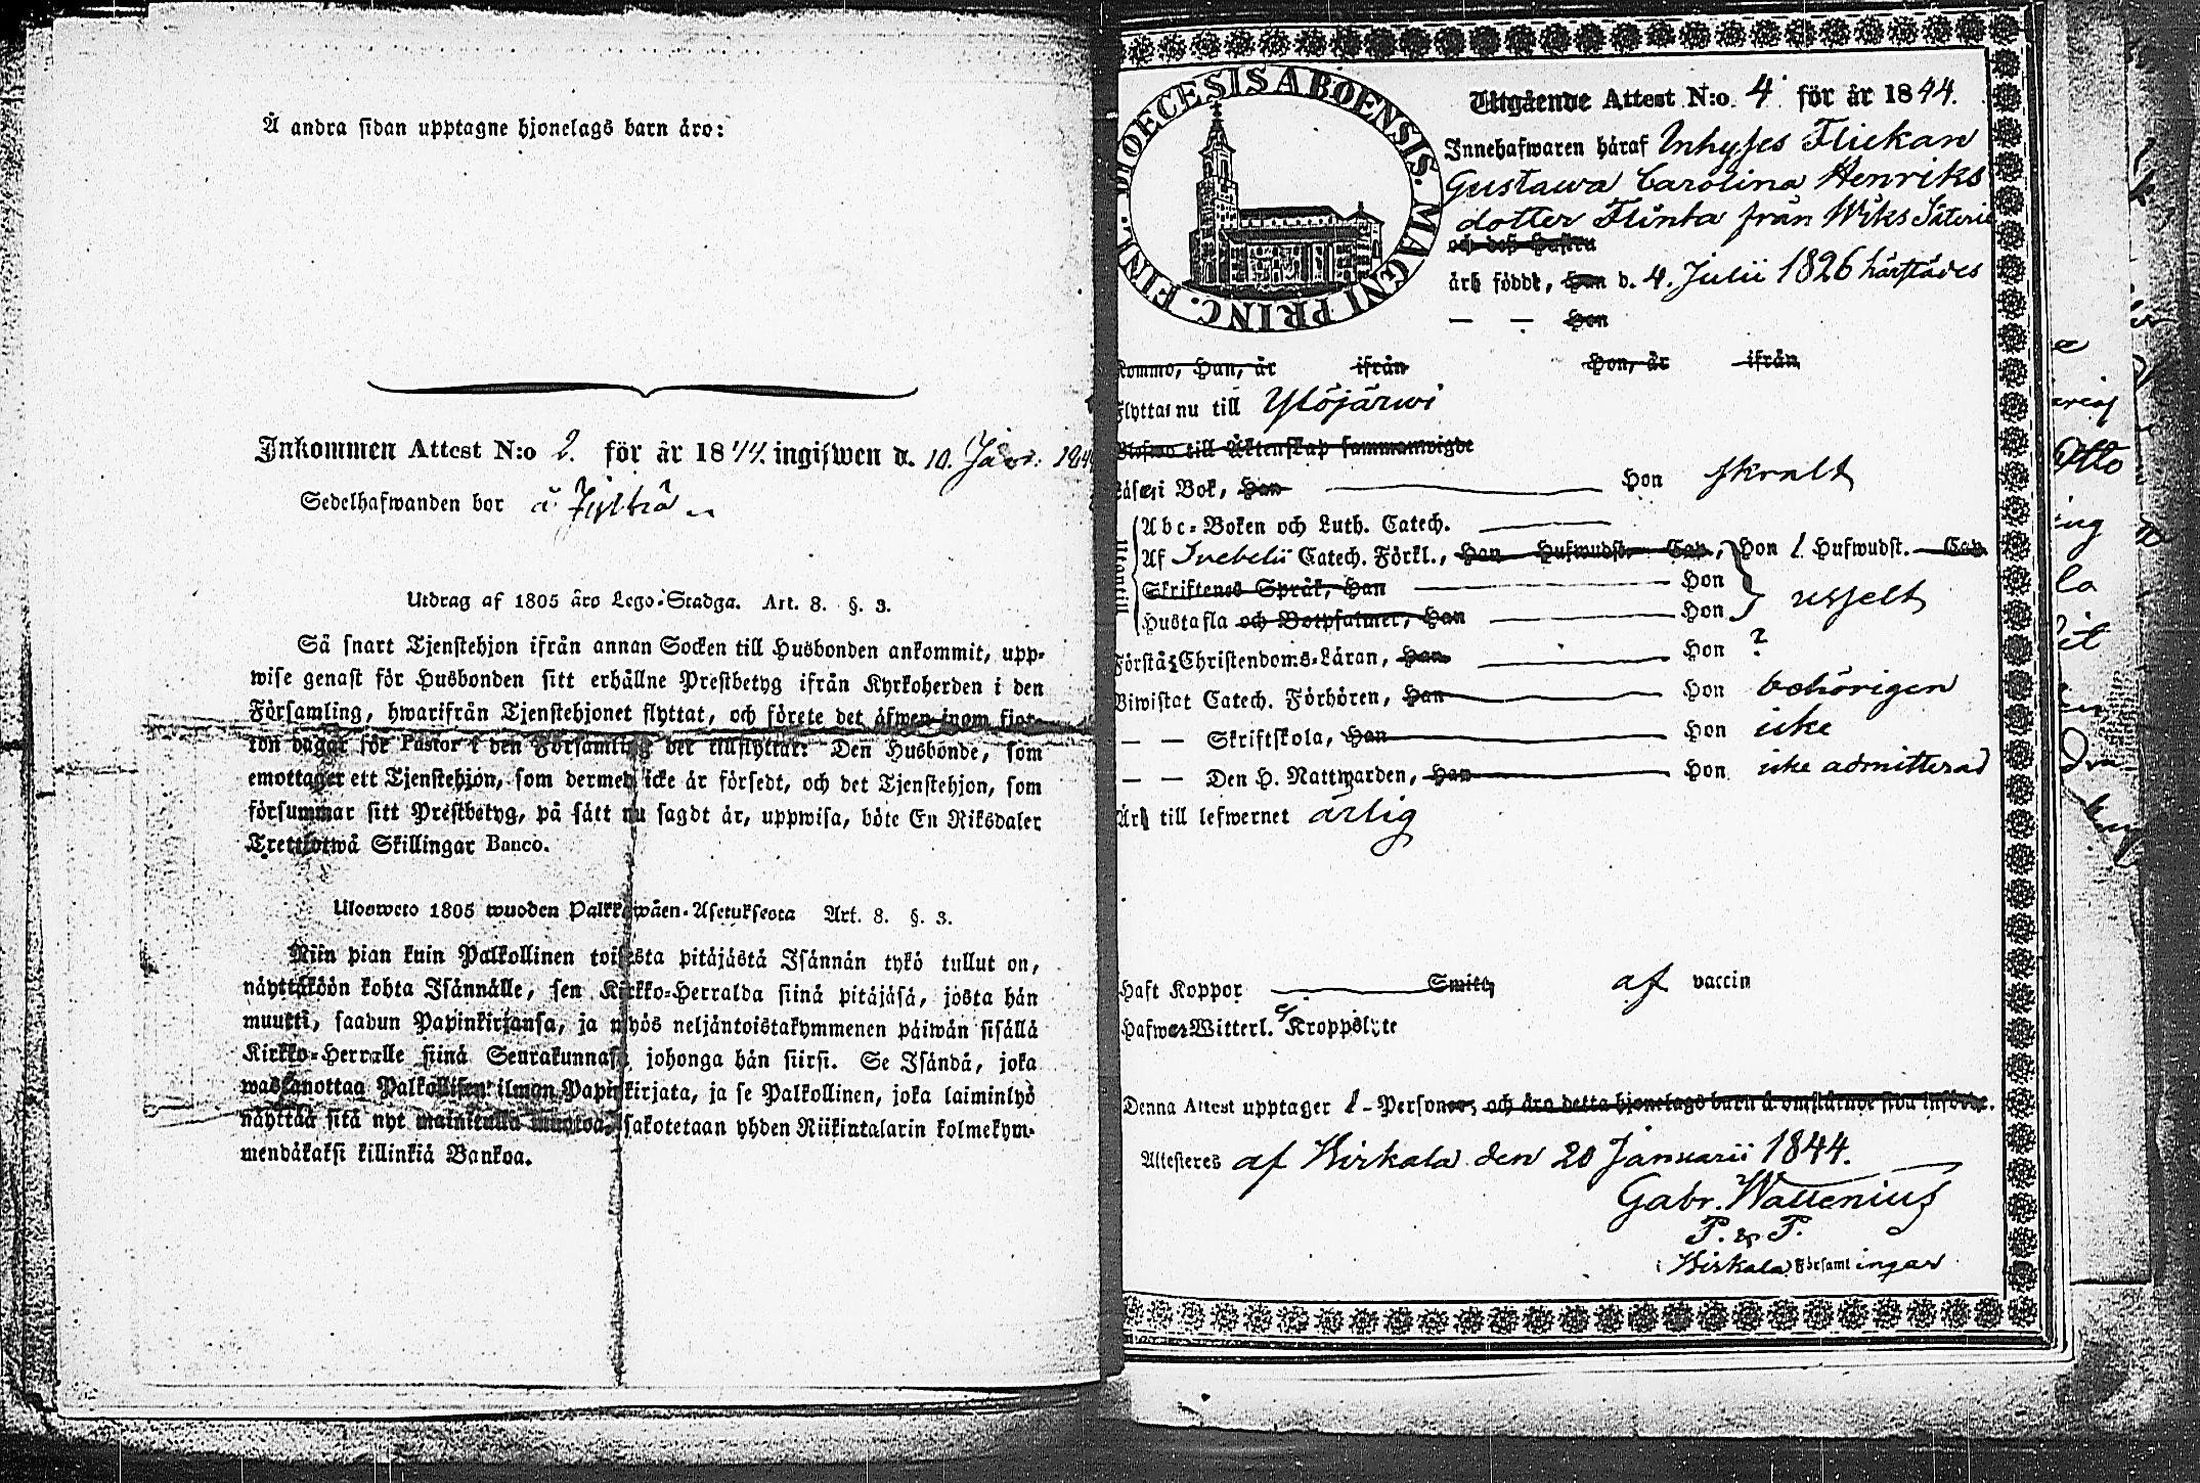 Å andra sidan upptagne hjonelags barn äro:
Inkommen Attest N:o 2. för år 1844. ingifwen d. 10.
Sedelhafwanden bor å
Utdrag af 1805 års Lego-Stadga. Art. 8. §. 3.
Så snart Tjenstehjon ifrån annan Socken till Husbonden ankommit, upp-
wise genast för Husbonden sitt erhållne Prestbetyg ifrån Kyrkoherden i den
Församling, hwarifrån Tjenstehjonet flyttat, och förete det äfwen inom fjor-
ton dagar för Pastor i den Församling det tillflyttar. Den Husbonde, som
emottager ett Tjenstehjon, som dermed icke är försedt, och det Tjenstehjon, som
försummar sitt Prestbetyg, på sätt nu sagdt är, uppwisa, böte En Riksdaler
Trettiotwå Skillingar Banco.
Ulosweto 1805 wuoden Palkkawäen-Asetuksesta Art. 8. §. 3.
Niin pian kuin Palkollinen toisesta pitäjästä Isännän tykö tullut on,
näyttäköön kohta Isännälle, sen Kirkko-Herralda siinä pitäjäsä, josta hän
muutti, saadun Papinkirjansa, ja myös neljäntoistakymmenen päiwän sisällä
Kirkko-Herralle siinä Seurakunnasa johonga hän siirsi. Se Isändä, joka
wastanottaa Palkollisen ilman Papinkirjata, ja se Palkollinen, joka laiminlyö
näyttää sitä nyt mainitulla muotoa, sakotetaan yhden Riikintalarin kolmekym-
mendäkaksi killinkiä Bankoa.
DIOECESIS ABOENSIS. MAGNI PRINC. FINL.
Utgående Attest N:o 4 för år 1844.
Innehafwaren häraf Inhyses Flickan
Gustawa Carolina Henriks
dotter Flinta från Wiks Säteri
och dess Hustru
är född, Han d. 4. Julii 1826 härstädes
— — Hon
Kommo, Han, är ifrån Hon, är ifrån
Flyttar nu till Ylöjärwi
till Äktenskap sammanwigde
Läser i Bok, Han Hon skralt
Abc-Boken och Luth. Catech.
Af Svebelii Catech. Förkl., Han Hufwudst. Cap., Hon 1. Hufwudst. Cap.
Utantill
Skriftenes Språk, Han Hon
Hustafla och Botpsalmer, Han Hon usselt
Förstår Christendoms-Läran, Han Hon ?
Biwistat Catech. Förhören, Han Hon behörigen
— — Skriftskola, Han Hon icke
— — Den H. Nattwarden, Han Hon icke admitterad
Är till lefwernet ärlig
Haft Koppor Smitt, af vaccin
Hafwer Witterl. ej Kroppslyte
Denna Attest upptager 1 Personer, och äro detta hjonelags barn å omstående sida införde.
Attesteres af Birkala den 20 Januarii 1844.
Gabr. Wallenius
P. & P.
i Birkala Församlingar